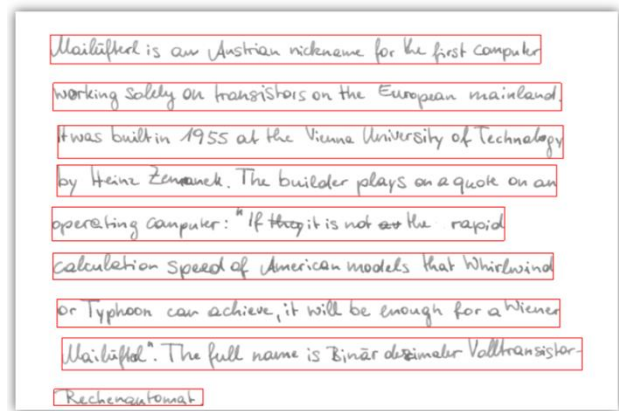 Mailüfterl is an Austrian nickname for the first computer
working solely on transistors on the European mainland.
It was built in 1955 at the Vienna University of Technology
by Heinz Zemanek. The builder plays on a quote on an
operating computer: "If it is not the rapid
calculation speed of American models that Whirlwind
or Typhoon can achieve, it will be enough for a Wiener
Mailüfterl". The full name is Binär dezimaler Volltransistor-
Rechenautomat.